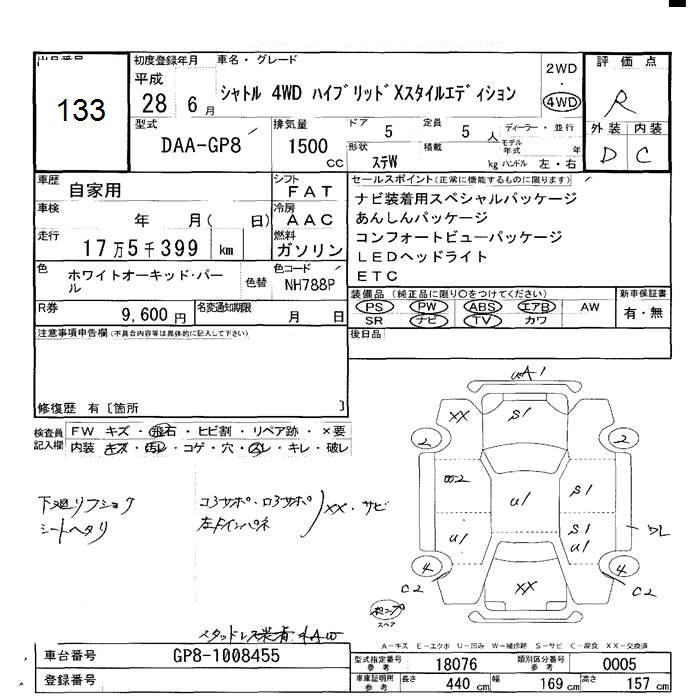 出品番号
133
初度登録年月
平成
28 6 月
車名・グレード
シャトル 4WD ハイブリッドXスタイルエディション
2WD
・
4WD
評価点
R
外装 内装
D C
型式
DAA-GP8
排気量
1500
cc
ドア
5
定員
5 人
ディーラー・並行
形状
ステW
積載
kg
モデル年式
年
ハンドル 左・右
車歴
自家用
シフト
FAT
車検
年 月( 日)
冷房
AAC
走行
17万5千399 km
燃料
ガソリン
セールスポイント(正常に機能するものに限ります)
ナビ装着用スペシャルパッケージ
あんしんパッケージ
コンフォートビューパッケージ
LEDヘッドライト
ETC
色
ホワイトオーキッド・パール
色替
色コード
NH788P
R券
9,600 円
名変通知期限
月 日
装備品(純正品に限り〇をつけてください)
PS PW ABS エアB AW
SR ナビ TV カワ
新車保証書
有・無
注意事項申告欄(不具合内容等は具体的に記入して下さい)
後日品
修復歴 有〔箇所 〕
検査員記入欄
FW キズ・飛石・ヒビ割・リペア跡・×要
内装 キズ・汚レ・コゲ・穴・スレ・キレ・破レ
下廻リフショク
シートヘタリ
コ3サポ・ロ3サポ
左Fインパネ
XX・サビ
UA1
XX
S1
2
2
U1
S1
U1
S1
U1
DL
4
4
C2
C2
XX
スペア
スタッドレス装着 4AW
A-キズ E-エクボ U-凹み W-補修跡 S-サビ C-腐食 XX-交換済
車台番号
GP8-1008455
登録番号
型式指定番号
参考
18076
類別区分番号
参考
0005
車庫証明用
参考
長さ
440 cm
幅
169 cm
高さ
157 cm